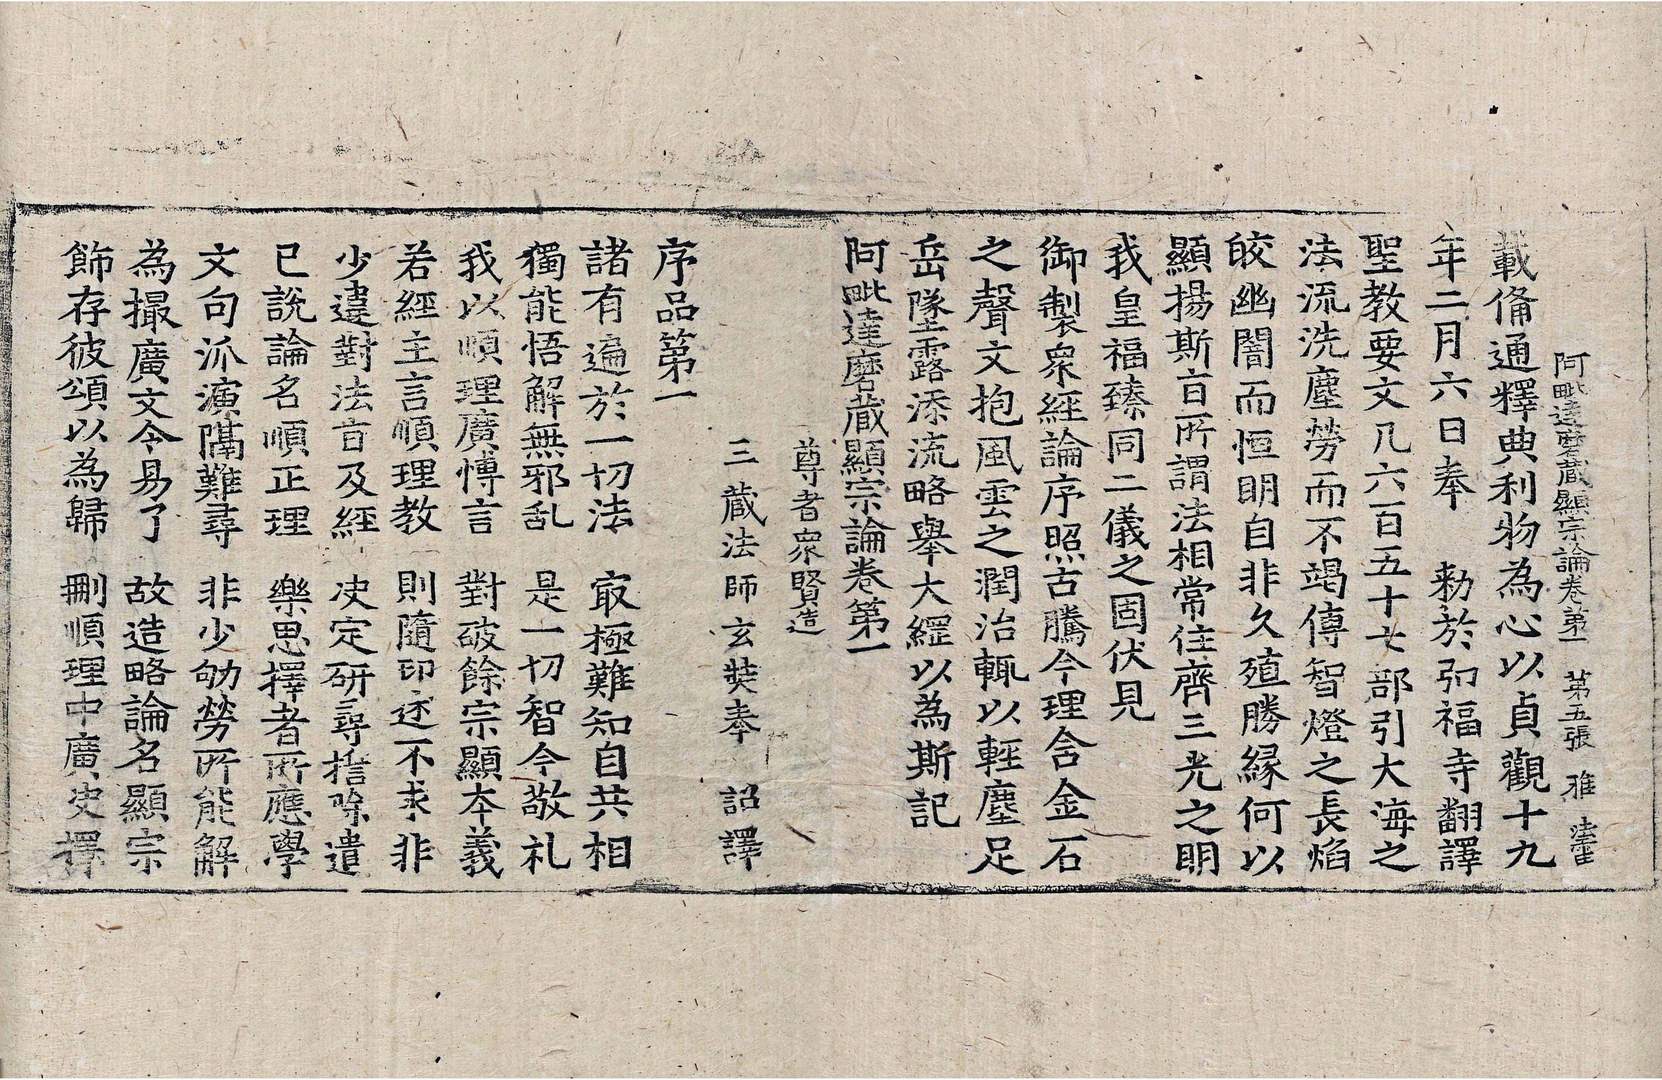 阿毗達磨藏顯宗論卷第一 第五張 雅
載俻通釋典利物為心以貞觀十九
年二月六日奉 勑於弘福寺翻譯
聖教要文凡六百五十七部引大海之
法流洗塵勞而不竭傳智燈之長焰
皎幽闇而恒明自非久殖勝緣何以
顯揚斯旨所謂法相常住齊三光之明
我皇福臻同二儀之固伏見
御製衆經論序照古騰今理含金石
之聲文抱風雲之潤治輒以輕塵足
岳墜露添流略舉大綱以為斯記
阿毗達磨藏顯宗論卷第一
尊者衆賢造
三藏法師玄奘奉 詔譯
序品第一
諸有遍於一切法 㝡極難知自共相
獨能悟解無邪乱 是一切智今敬礼
我以順理廣愽言 對破餘宗顯本義
若經主言順理教 則隨印述不求非
少違對法旨及經 决定研尋捨除遣
已說論名順正理 樂思擇者所應學
文句派演隔難尋 非少劬勞所能解
為撮廣文令易了 故造略論名顯宗
飾存彼頌以為歸 刪順理中廣决擇